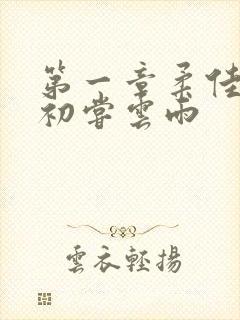 第一章柔佳
初嘗雲雨
雲衣輕揚